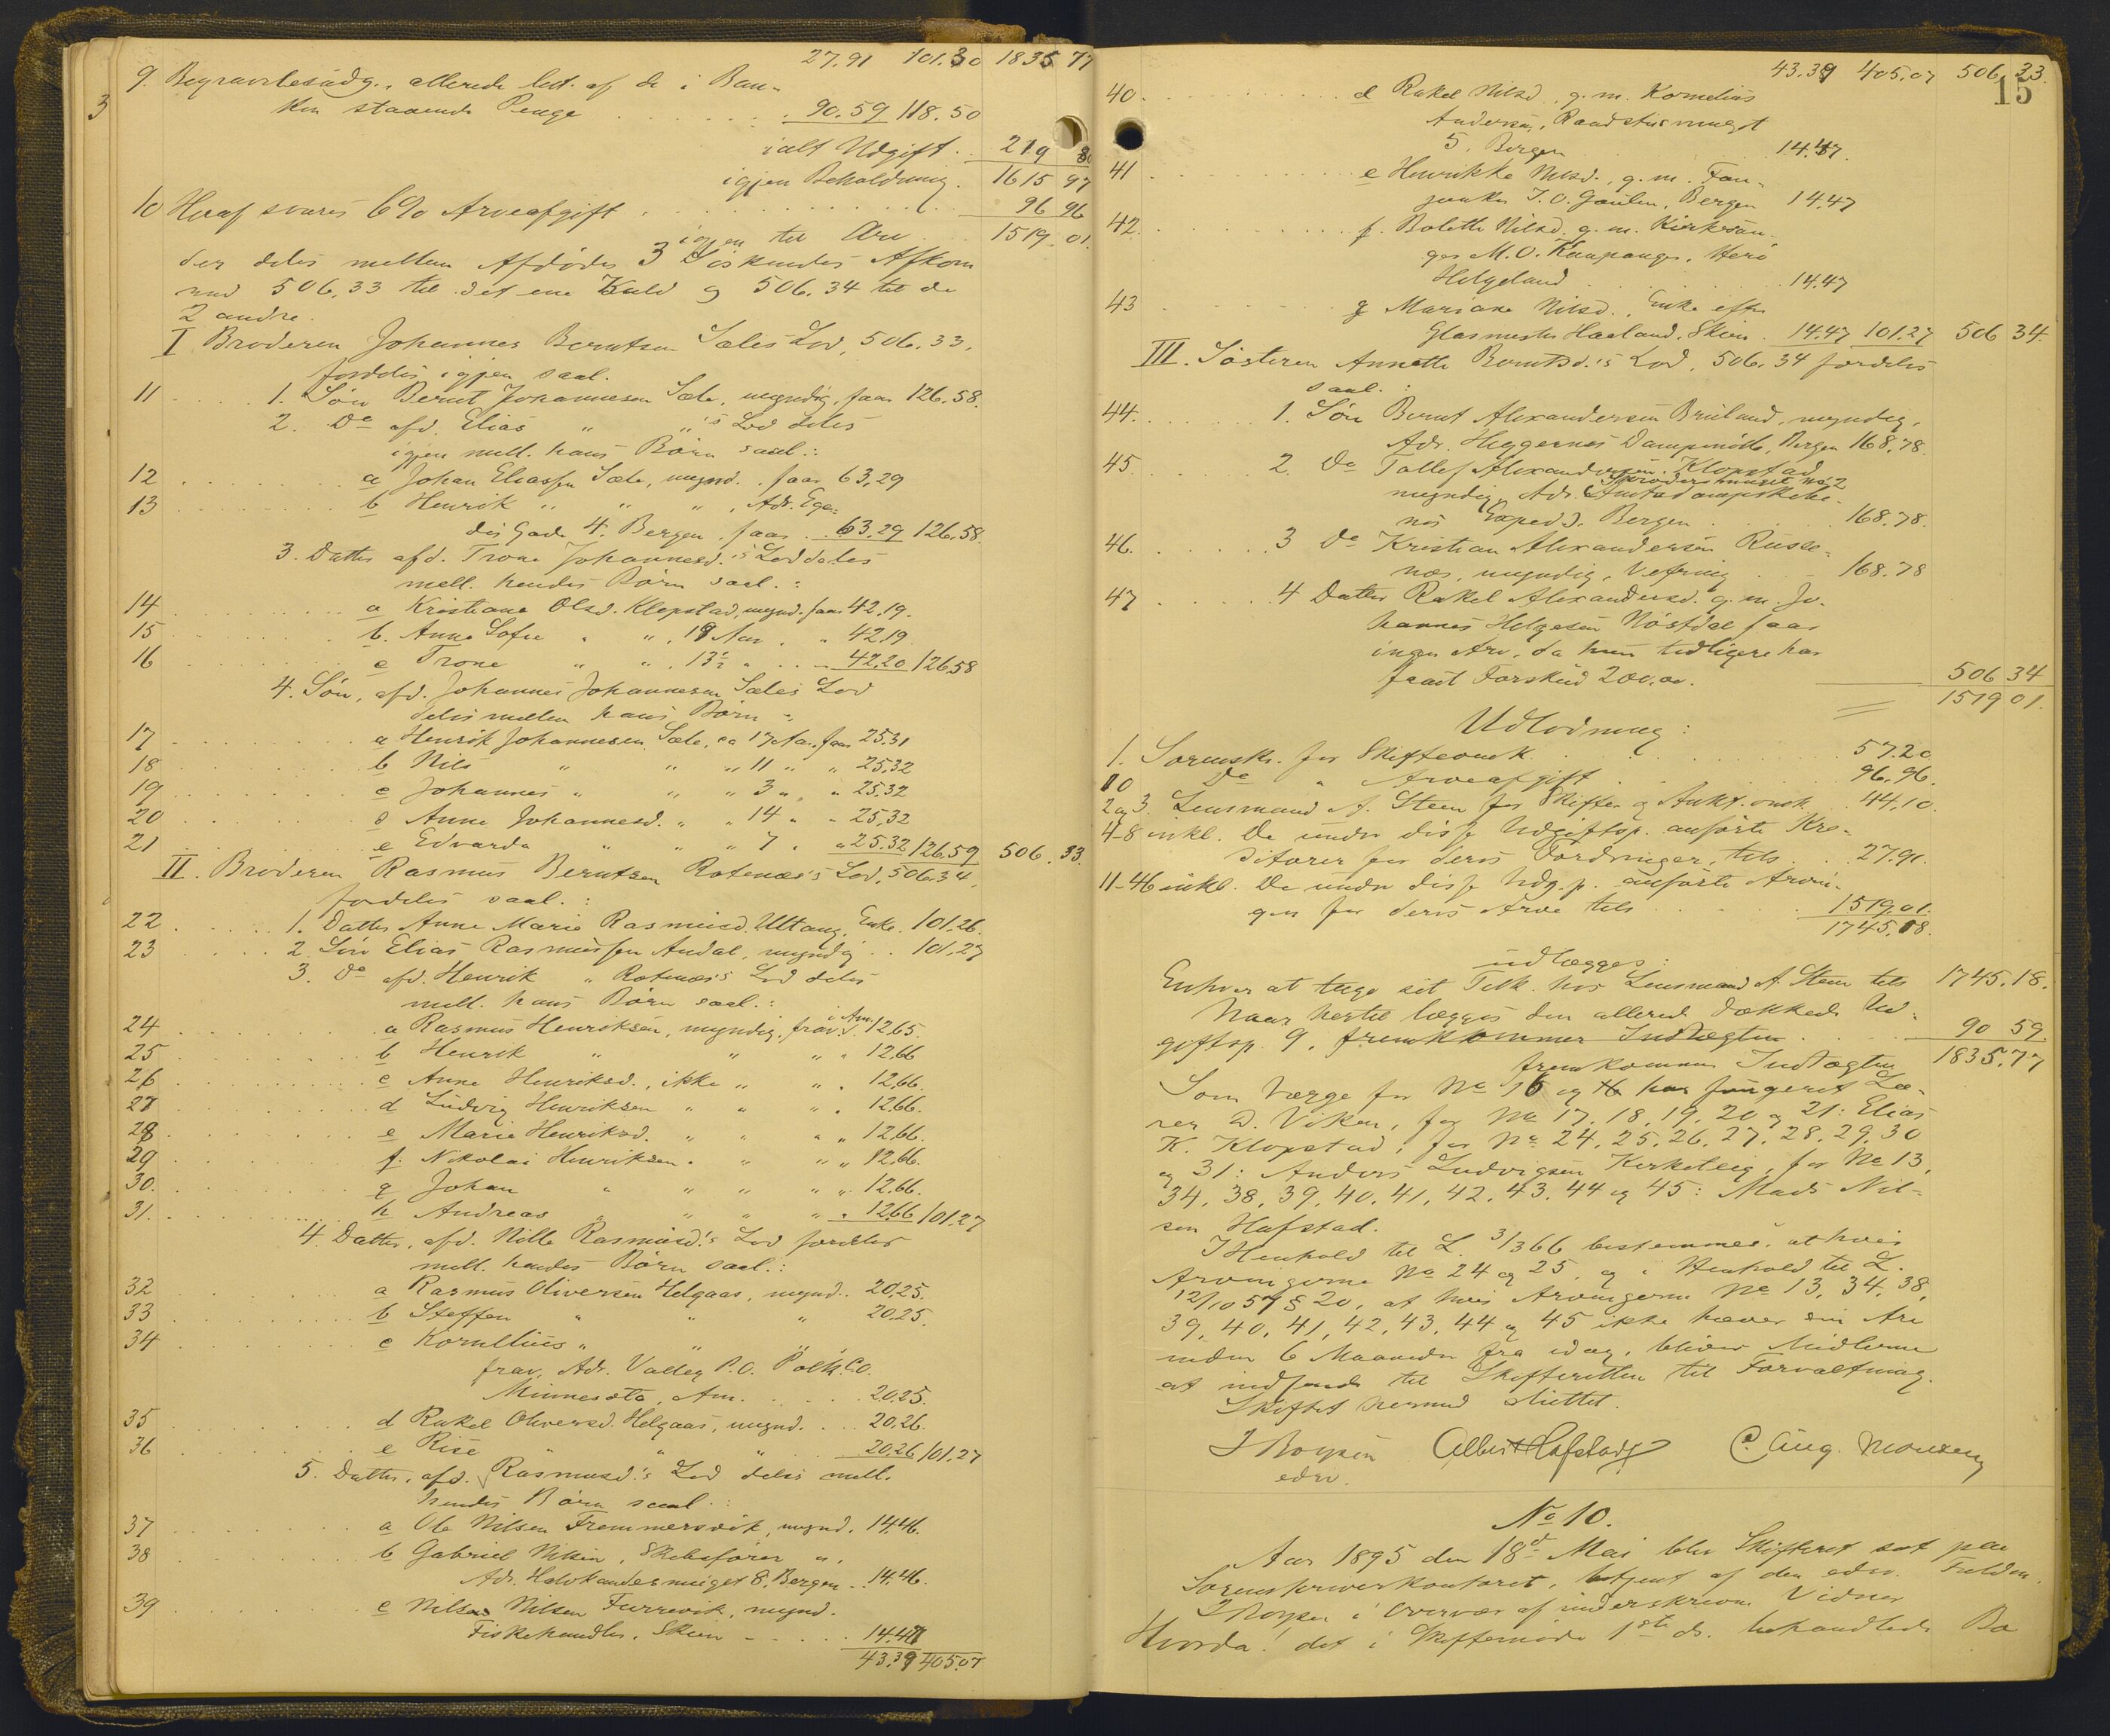 27.91 101.30 1835 77
9. Begravelsesudg., allerede bet. af de i Ban-
3 ken staaende Penge . . . . . . 90.59 118.50
ialt Udgift . . 219 80
igjen Beholdning . 1615 97
10 Heraf svares 6% Arveafgift . . . . . . . . 96 96
igjen til Arv . . 1519 01.
der deles mellem Afdødes 3 Søskendes Afkom
med 506.33 til det ene Kuld og 506.34 til de
2 andre.
I Broderen Johannes Berntsen Sæles Lod, 506.33,
fordeles igjen saal.
11 . . . . 1. Søn Bernt Johannesen Sæle, myndig, faar 126.58.
2. Do afd. Elias " "'s Lod deles
igjen mell. hans Børn saal.:
12 . . . . . a Johan Eliassen Sæle, mynd., faar 63,29
13 . . . . . b Henrik " " ", Adr. Ege-
des Gade 4. Bergen, faar . . 63,29 126,58.
3. Datter afd. Trone Johannesd.'s Lod deles
mell. hendes Børn saal.:
14 . . . . . a Kristiane Olsd. Klopstad, mynd. faar 42.19.
15 . . . . . b. Anna Sofie " ", 19 Aar, " 42.19.
16 . . . . . c Trone " ", 13½ " . . 42,20 126,58
4. Søn, afd. Johannes Johannesen Sæles Lod
deles mellem hans Børn :
17 . . . . . a Henrik Johannesen Sæle, ca 17 Aar, faar 25.31
18 . . . . . b Nils " " " 11 " " 25,32
19 . . . . . c Johannes " " " 3 " " 25.32
20 . . . . . d Anne Johannesd. " " 14 " " 25,32
21 . . . . . e Edvarda " " " 7 " " 25.32 126,59 506.33.
II. Broderen Rasmus Berntsen Rotenæs's Lod, 506.34,
fordeles saal.:
22 . . . . 1. Datter Anne Marie Rasmusd. Ultang, Enke. 101,26.
23 . . . . 2. Søn Elias Rasmussen Andal, myndig . . 101,27
3. Do afd. Henrik " Rotenæs's Lod deles
mell. hans Børn saal.:
24 . . . . . a Rasmus Henriksen, myndig, frav. i Am. 12.65.
25 . . . . . b Henrik " " " " 12,66
26 . . . . . c Anne Henriksd., ikke " " " 12,66.
27 . . . . . d Ludvig Henriksen " " " " 12,66.
28 . . . . . e Marie Henriksd. " " " " 12,66.
29 . . . . . f. Nikolai Henriksen " " " " 12.66.
30. . . . . . g Johan " " " " " 12.66.
31. . . . . . h Andreas " " " " " 12.66 101.27
4. Datter, afd. Nille Rasmusd.'s Lod fordeles
mell. hendes Børn saal.:
32 . . . . . a Rasmus Oliversen Helgaas, mynd. . 20,25.
33 . . . . . b Steffen " " " 20.25.
34 . . . . . c Kornelius " " "
frav. Adr. Valley P.O. Polk Co.
Minnesota, Am. . . . . 20.25.
35 . . . . . d Rakel Oliversd. Helgaas, mynd. . . . 20,26.
36 . . . . . e Rise " " " . . 20.26 101.27
5. Datter, afd. Rasmusd.'s Lod deles mell.
hendes Børn saal.:
37 . . . . . a Ole Nilsen Fremmersvik, mynd. 14.46.
38 . . . . . b Gabriel Nilsen, Skibsfører ",
Adr. Halvkandesmuget 8. Bergen . . 14.46.
39 . . . . . c Nils Nilsen Furrevik, mynd.
Fiskehandler, Skien . . . . . 14.47
43.39 405.07
43.39 405.07 506.33.
15
40. . . . . . d Rakel Nilsd. g. m. Kornelius
Andersen, Raadstusmuget
5, Bergen . . . 14.47.
41 . . . . . e Henrikke Nilsd., g. m. Fan-
junker J. O. Gaulen, Bergen 14.47
42. . . . . . f. Bolette Nilsd. g. m. Kirkesan-
ger M. O. Kaupanger, Herø
Helgeland . . . . 14.47
43 . . . . . g Mariane Nilsd., Enke efter
Glasmester Haaland, Skien . 14.47 101.27 506 34.
III. Søsteren Annette Berntsd.'s Lod, 506.34 fordeles
saal.:
44. . . . . 1. Søn Bernt Alexandersen Bruland, myndig,
Adr. Heggernes Dampmølle, Bergen 168,78.
45. . . . . 2. Do Tollef Alexandersen Klopstad
myndig, Adr. Skrødershuset no 2
nes Exped., Bergen . . . . . 168.78.
46. . . . . 3 Do Kristian Alexandersen Russe-
næs, myndig, Vefring . . . 168.78
47 . . . . 4 Datter Rakel Alexandersd. g. m. Jo-
hannes Helgesen Nøstdal faar
ingen Arv, da hun tidligere har
faaet Forskud 200,oo. 506 34
1519 01.
Udlodning:
1. Sorenskr. for Skifteomk. . . . . . . 57.20
10 Do " Arveafgift . . . . . 96.96.
2 og 3. Lensmand A. Steen for Skifte- og Aukt. omk. 44,10.
4-8 inkl. De under disse Udgiftsp. anførte Kre-
ditorer for deres Fordringer, tils. . . 27.91.
11-46 inkl. De under disse Udg.p. anførte Arvin-
ger for deres Arve tils . . . . . 1519,01.
1745.18.
udlægges:
Enhver at tage sit Tilk. hos Lensmand A. Steen tils 1745.18.
Naar hertil lægges den allerede dækkede Ud-
giftsp. 9, fremkommer Indtægten . . . 90 59
fremkommer Indtægten 1835.77
Som Værge for No 15 og 16 har fungeret Læ-
rer D. Viken, for No 17, 18, 19, 20 og 21: Elias
K. Klopstad, for No 24, 25, 26, 27, 28, 29, 30
og 31: Anders Ludvigsen Kirketeig, for No 13,
34, 38, 39, 40, 41, 42, 43, 44 og 45: Mads Nil-
sen Hafstad.
I Henhold til L. 3/3 66 bestemmes, at hvis
Arvingerne No 24 og 25, og i Henhold til L.
12/10 57 § 20, at hvis Arvingerne No 13, 34, 38,
39, 40, 41, 42, 43, 44 og 45 ikke hæver sin Arv
inden 6 Maaneder fra idag, bliver Midlerne
at indsende til Skifteretten til Forvaltning.
Skiftet hermed sluttet.
J Boysen Albert Hafstad C. Aug. Monsen
edsv.
No 10.
Aar 1895 den 18d Mai blev Skifteret sat paa
Sorenskriverkontoret, betjent af den edsv. Fuldm.
J Boysen i Overvær af underskrevne Vidner
Hvorda! det i Skiftemøde 1ste ds. behandlede Bo